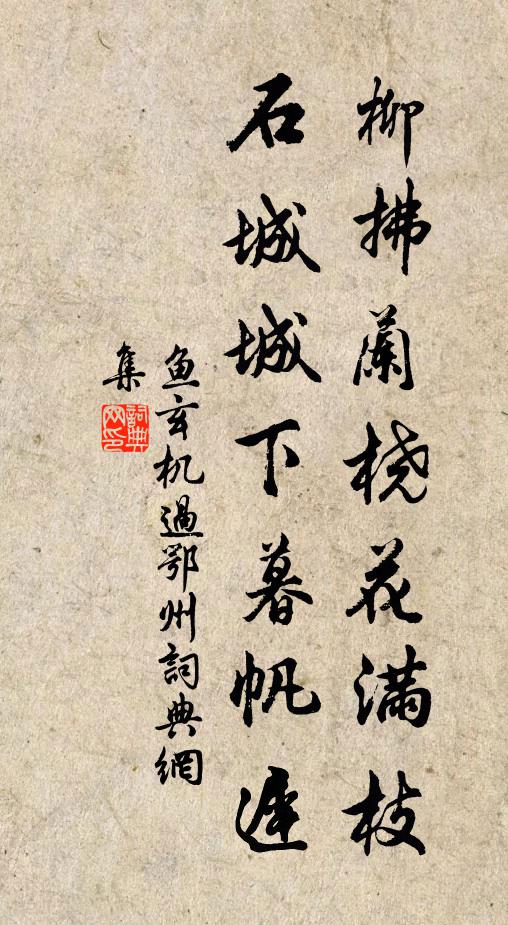 柳拂蘭桡花滿枝
石城城下暮帆遲
鱼玄机過鄂州詞典網
集
詞典網印